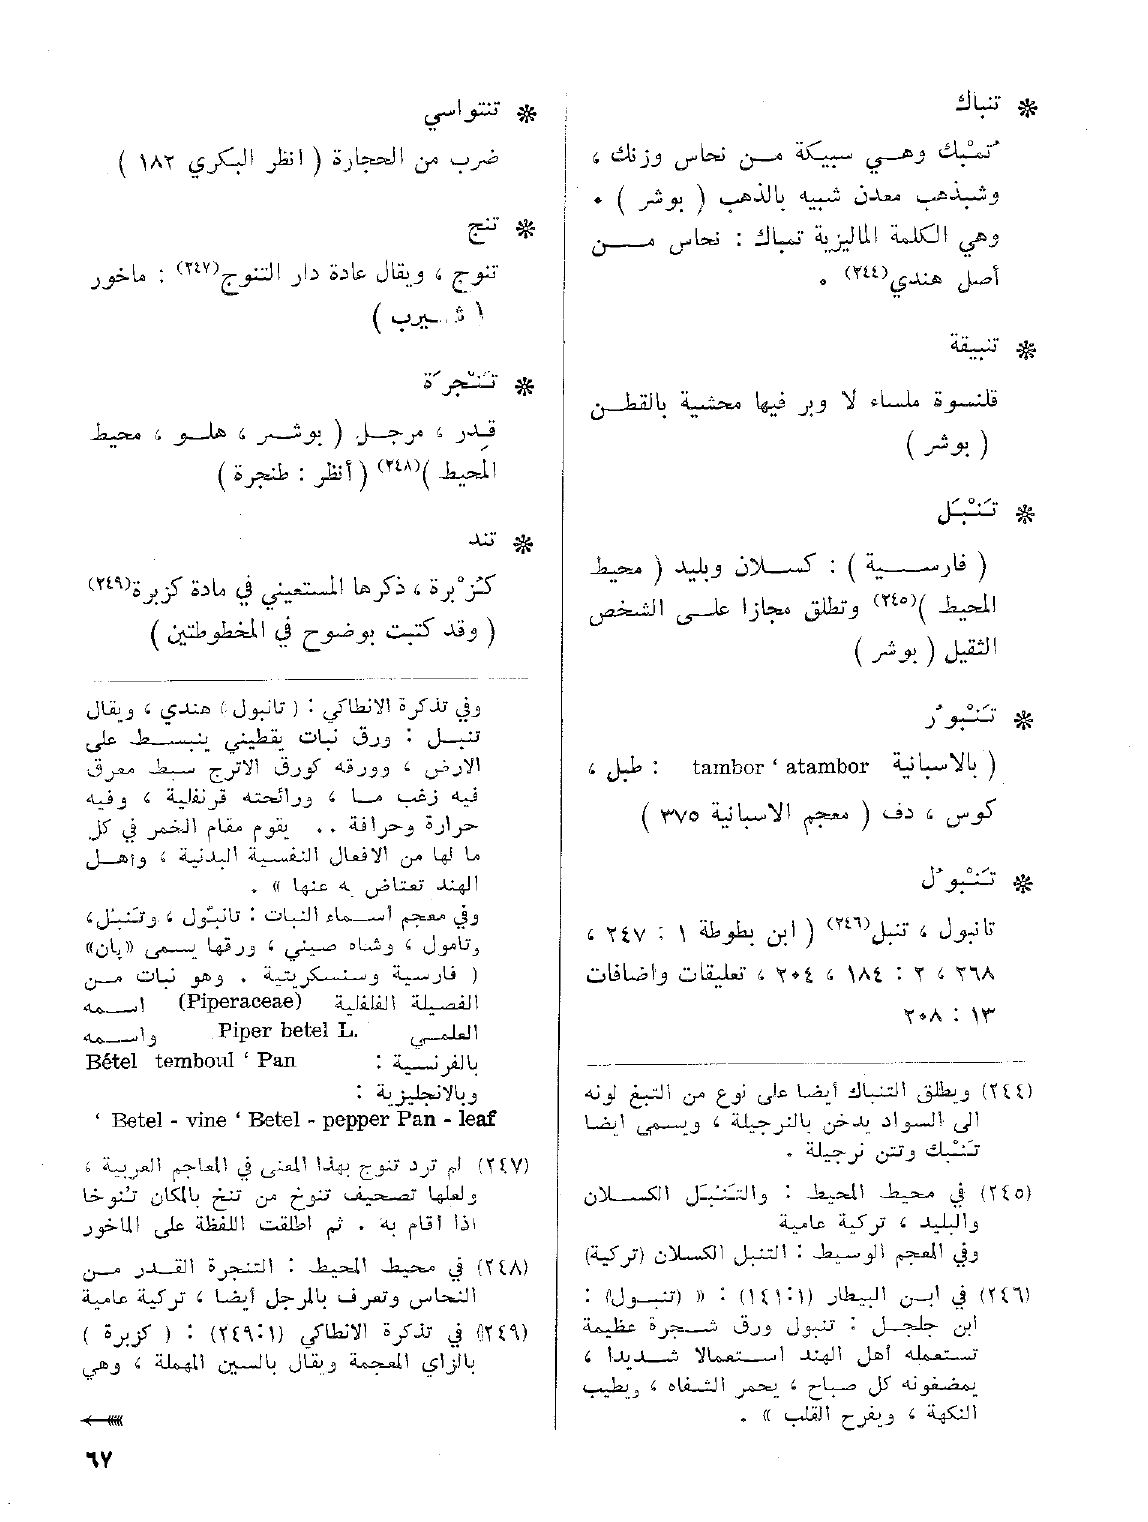 * تنباك
تُمْبك وهي سبيكة من نحاس وزنك ،
وشبذهب معدن شبيه بالذهب ( بوشر ) ٠
وهي الكلمة الماليزية تمباك : نحاس من
أصل هندي(٢٤٤) ٠
* تنبيقة
قلنسوة ملساء لا وبر فيها محشية بالقطن
( بوشر )
* تَنْبَل
( فارسية ) : كسلان وبليد ( محيط
المحيط )(٢٤٥) وتطلق مجازا على الشخص
الثقيل ( بوشر )
* تَنْبور
( بالاسبانية tambor ‘ atambor : طبل ،
كوس ، دف ( معجم الاسبانية ٣٧٥ )
* تَنْبول
تانبول ، تنبل(٢٤٦) ( ابن بطوطة ١ : ٢٤٧ ،
٣٦٨ ، ٢ : ١٨٤ ، ٢٠٤ ، تعليقات واضافات
١٣ : ٢٠٨
(٢٤٤) ويطلق التنباك أيضا على نوع من التبغ لونه
الى السواد يدخن بالنرجيلة ، ويسمى ايضا
تَنْبَك وتتن نرجيلة .
(٢٤٥) في محيط المحيط : والتَنْبَل الكسلان
والبليد ، تركية عامية
وفي المعجم الوسيط : التنبل الكسلان (تركية)
(٢٤٦) في ابن البيطار (١:١٤١) : « (تنبول) :
ابن جلجل : تنبول ورق شجرة عظيمة
تستعمله أهل الهند استعمالا شديدا ،
يمضغونه كل صباح ، يحمر الشفاه ، ويطيب
النكهة ، ويفرح القلب » .
* تنتواسي
ضرب من الحجارة ( انظر البكري ١٨٢ )
* تنج
تنوج ، ويقال عادة دار التنوج(٢٤٧) : ماخور
( شيرب )
* تَنْجرَة
قِدر ، مرجل ( بوشر ، هلو ، محيط
المحيط )(٢٤٨) ( أنظر : طنجرة )
* تند
كُزْبرة ، ذكرها المستعيني في مادة كزبرة(٢٤٩)
( وقد كتبت بوضوح في المخطوطتين )
وفي تذكرة الانطاكي : ( تانبول ) هندي ، ويقال
تنبل : ورق نبات يقطيني ينبسط على
الارض ، وورقه كورق الاترج سبط معرق
فيه زغب ما ، ورائحته قرنفلية ، وفيه
حرارة وحرافة .. يقوم مقام الخمر في كل
ما لها من الافعال النفسية البدنية ، واهل
الهند تعتاض به عنها » .
وفي معجم أسماء النبات : تانبُول ، وتَنبُل،
وتامول ، وشاه صيني ، ورقها يسمى «بان»
( فارسية وسنسكريتية . وهو نبات من
الفصيلة الفلفلية (Piperaceae) اسمه
العلمي Piper betel L. واسمه
بالفرنسية : Bétel temboul ‘ Pan
وبالانجليزية :
‘ Betel - vine ‘ Betel - pepper Pan - leaf
(٢٤٧) لم ترد تنوج بهذا المعنى في المعاجم العربية ،
ولعلها تصحيف تنوخ من تنخ بالمكان تُنوخا
اذا أقام به . ثم اطلقت اللفظة على الماخور
(٢٤٨) في محيط المحيط : التنجرة القدر من
النحاس وتعرف بالمرجل أيضا ، تركية عامية
(٢٤٩) في تذكرة الانطاكي (٢٤٩:١) : ( كزبرة )
بالزاي المعجمة ويقال بالسين المهملة ، وهي
٦٧